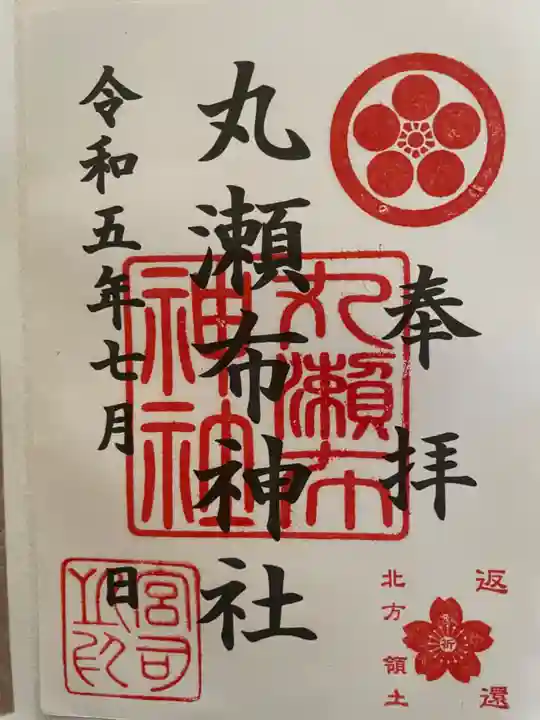 奉拝
丸瀬布神社
令和五年七月 日
丸瀬布
神社
宮司
之印
返還
北方領土
祈